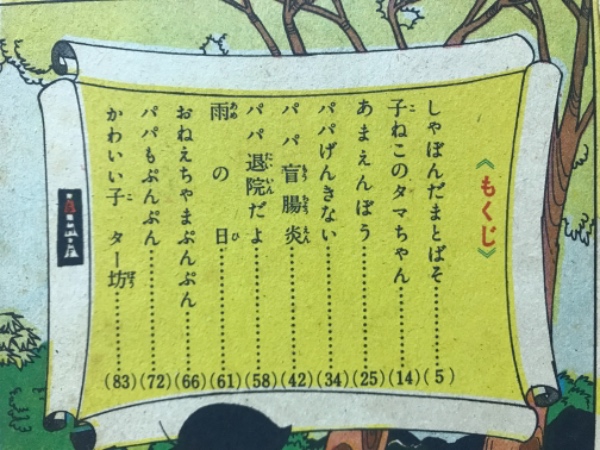 《もくじ》
しゃぼんだまとばそ………(5)
子ねこのタマちゃん………(14)
あまえんぼう………(25)
パパげんきない………(34)
パパ盲腸炎………(42)
パパ退院だよ………(58)
雨の日………(61)
おねえちゃまぷんぷん………(66)
パパもぷんぷん………(72)
かわいい子ター坊………(83)